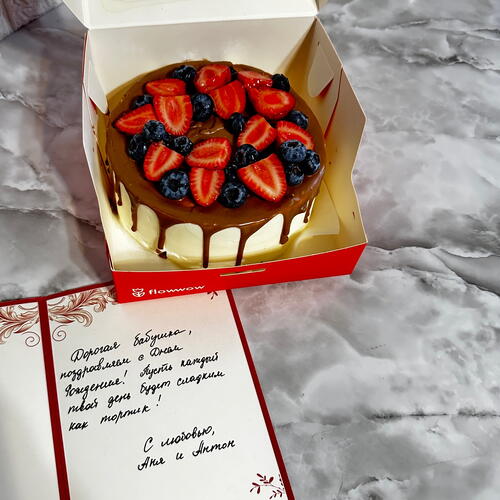 flowwow
Дорогая бабушка,
поздравляем с Днем
Рождения! Пусть каждый
твой день будет сладким
как тортик!
С любовью,
Аня и Антон